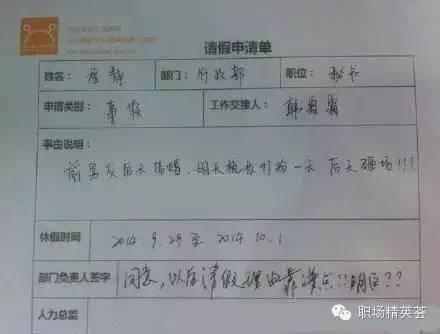 请假申请单
姓名： 唐静 部门： 行政部 职位： 秘书
申请类别： 事假 工作交接人：
事由说明：
前男友后天结婚，明天梳妆打扮一天 后天砸场!!!
休假时间 2014 9.29 至 2014 10.1
部门负责人签字 同意，以后请假理由靠谱点!!明白??
人力总监
职场精英荟